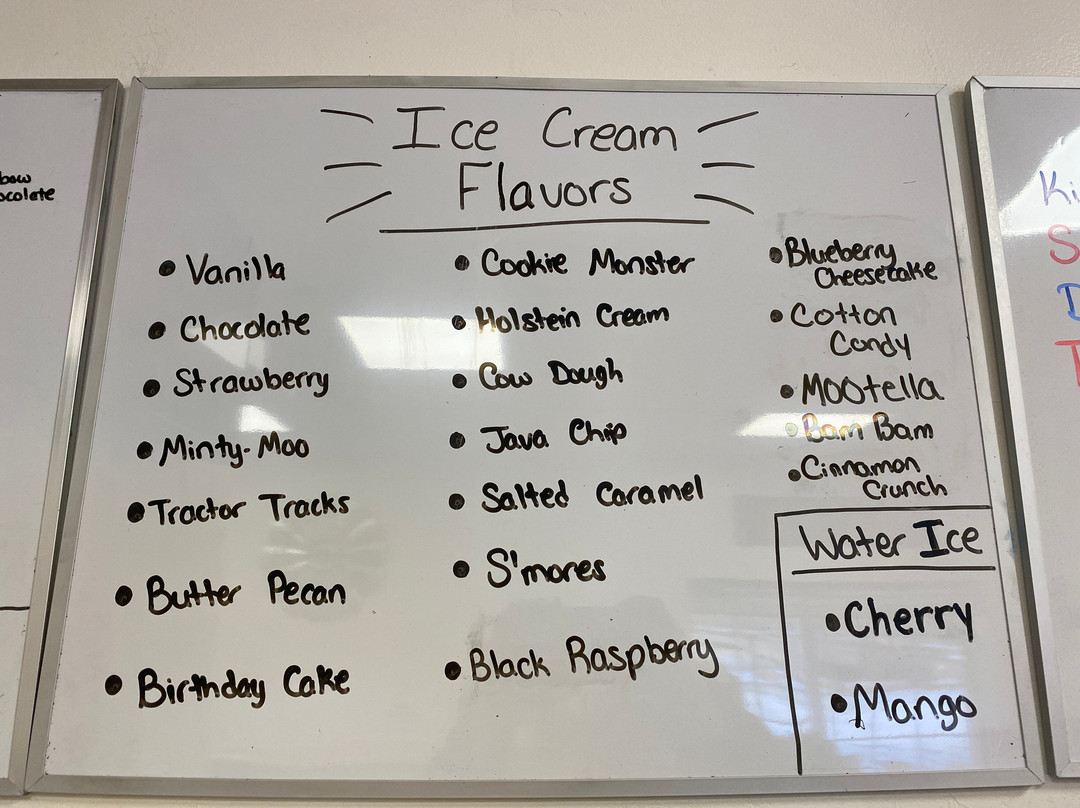 Ice Cream
Flavors
• Vanilla
• Chocolate
• Strawberry
• Minty-Moo
• Tractor Tracks
• Butter Pecan
• Birthday Cake
• Cookie Monster
• Holstein Cream
• Cow Dough
• Java Chip
• Salted Caramel
• S'mores
• Black Raspberry
• Blueberry
Cheesecake
• Cotton
Candy
• Mootella
• Bam Bam
• Cinnamon
Crunch
Water Ice
• Cherry
• Mango